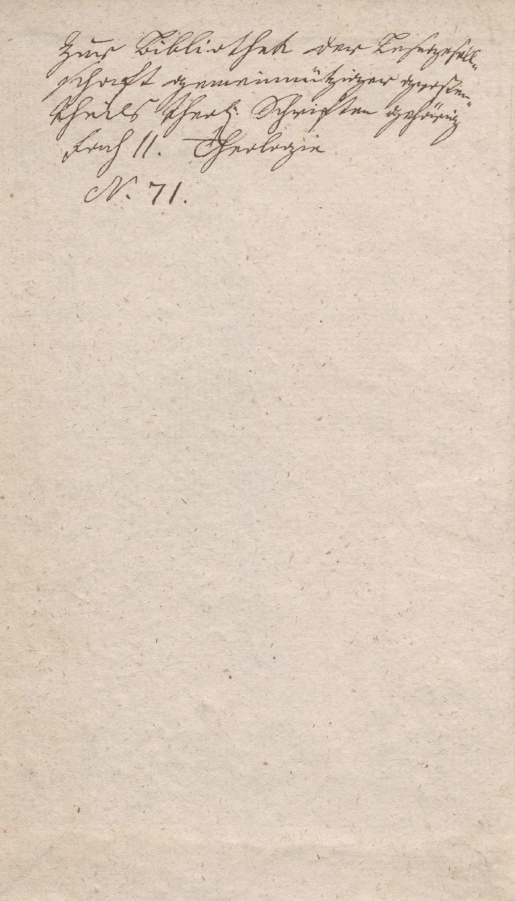 Zur Bibliothek der Lesegesell-
schaft gemeinnütziger grösten-
theils theol. Schriften gehörig
Fach II. Theologie
N. 71.